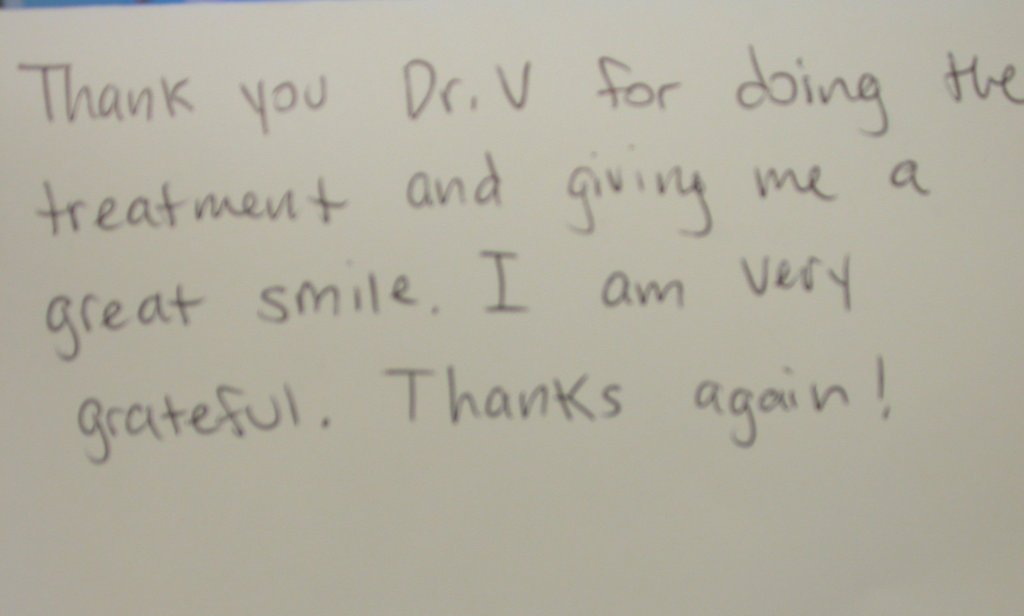 Thank you Dr. V for doing the
treatment and giving me a
great smile. I am very
grateful. Thanks again!